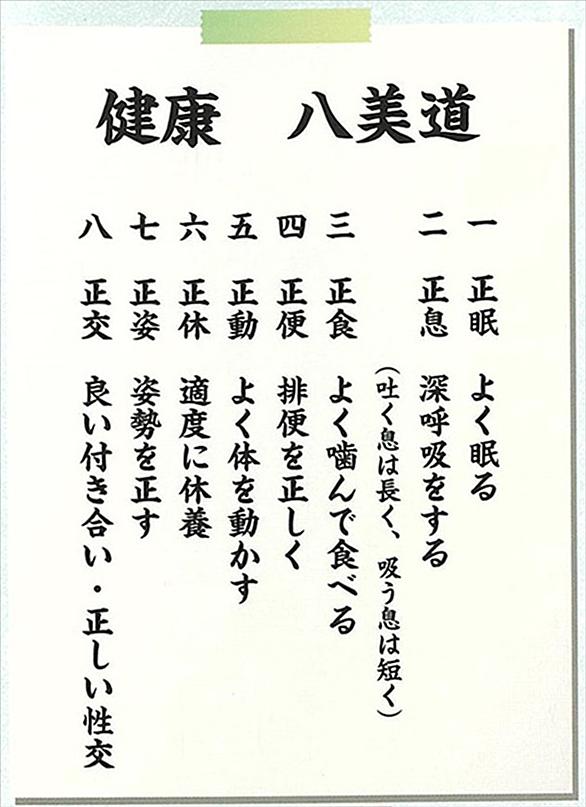 健康　八美道
一　正眠　よく眠る
二　正息　深呼吸をする
（吐く息は長く、吸う息は短く）
三　正食　よく噛んで食べる
四　正便　排便を正しく
五　正動　よく体を動かす
六　正休　適度に休養
七　正姿　姿勢を正す
八　正交　良い付き合い・正しい性交